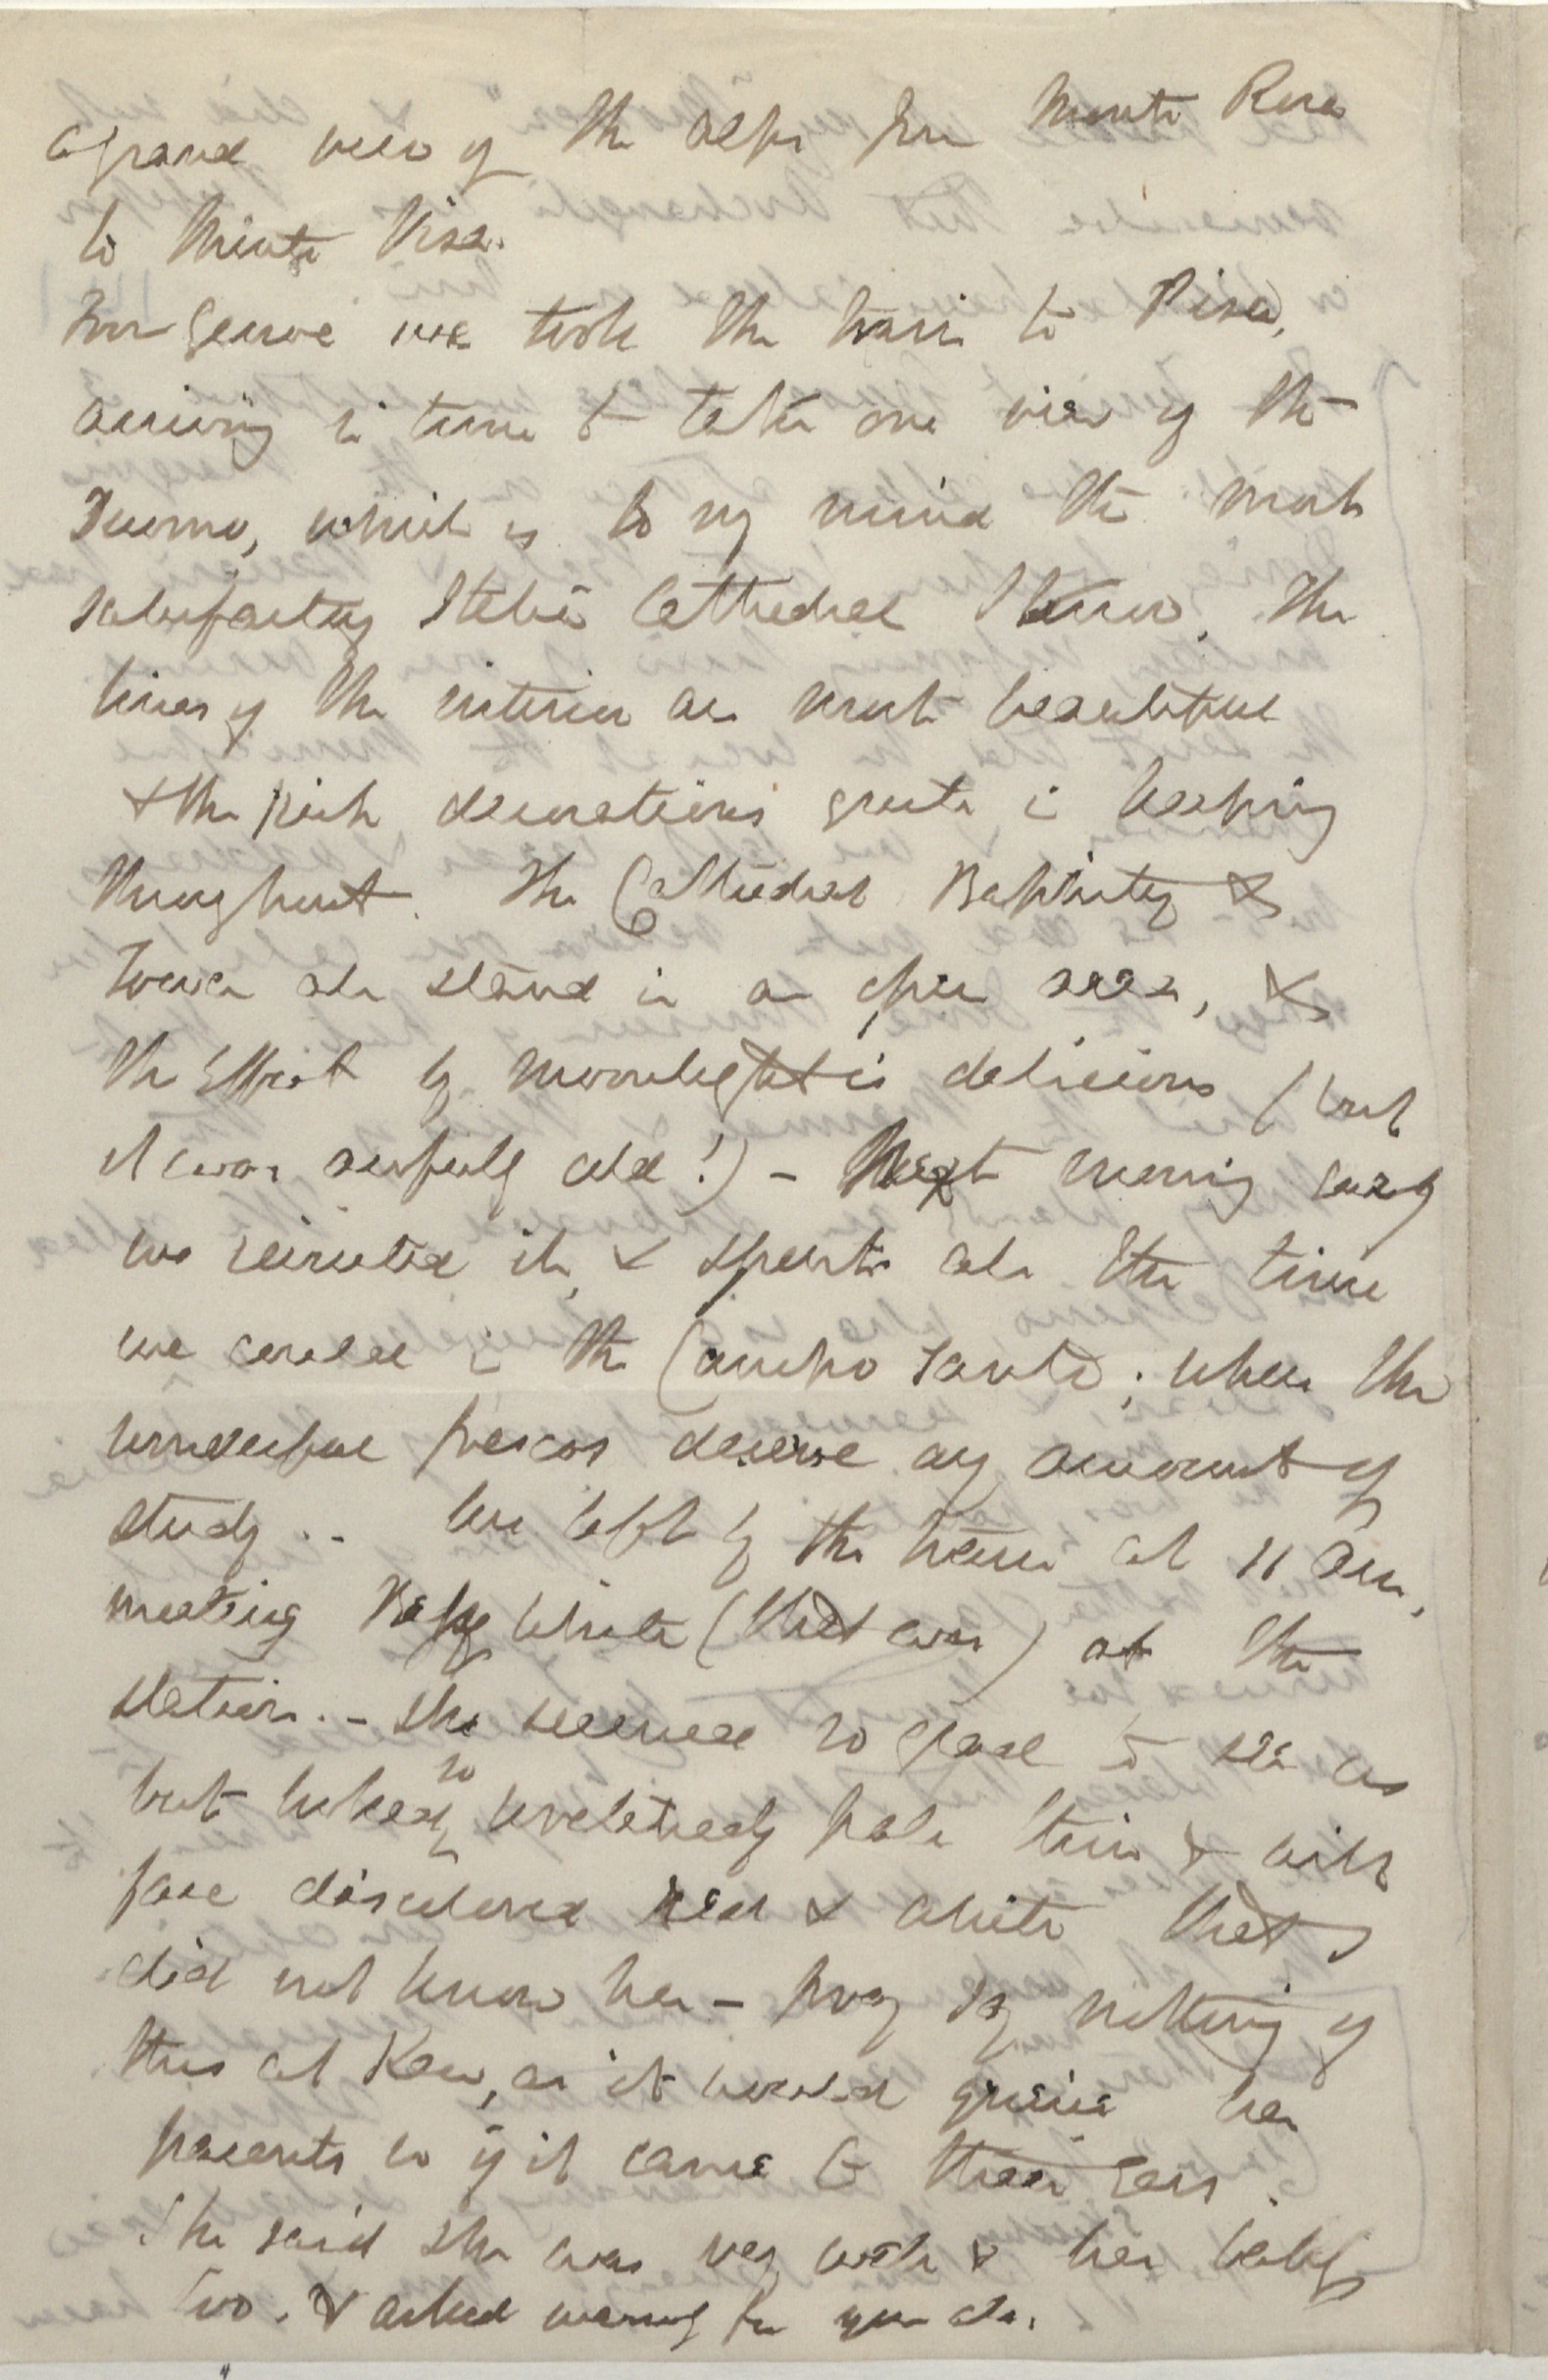 a grand view of the Alps from Monte Rosa
to Monte Viso.
From Genoa we took the train to Pisa,
arriving in time to take one view of the
Duomo, which is to my mind the most
satisfactory Italian Cathedral I know. The
lines of the interior are most beautiful
& the rich decorations quite in keeping
throughout. The Cathedral Baptistry &
Tower all stand in an open area, &
the effect by moonlight is delicious (but
it was awfully cold!) – Next morning early
we revisited it, & spent all the time
we could in the Campo Santo; where the
wonderful frescos deserve any amount of
study. – We left by the train at 11 am,
meeting Polly White (that was) at the
station. – She seemed so glad to see us
but looked so wretchedly pale thin & with
face discolored red & white that I
did not know her – pray say nothing of
this at Kew, as it would grieve her
parents so if it came to their ears.
She said she was very well & her baby
too. & asked warmly for you all.